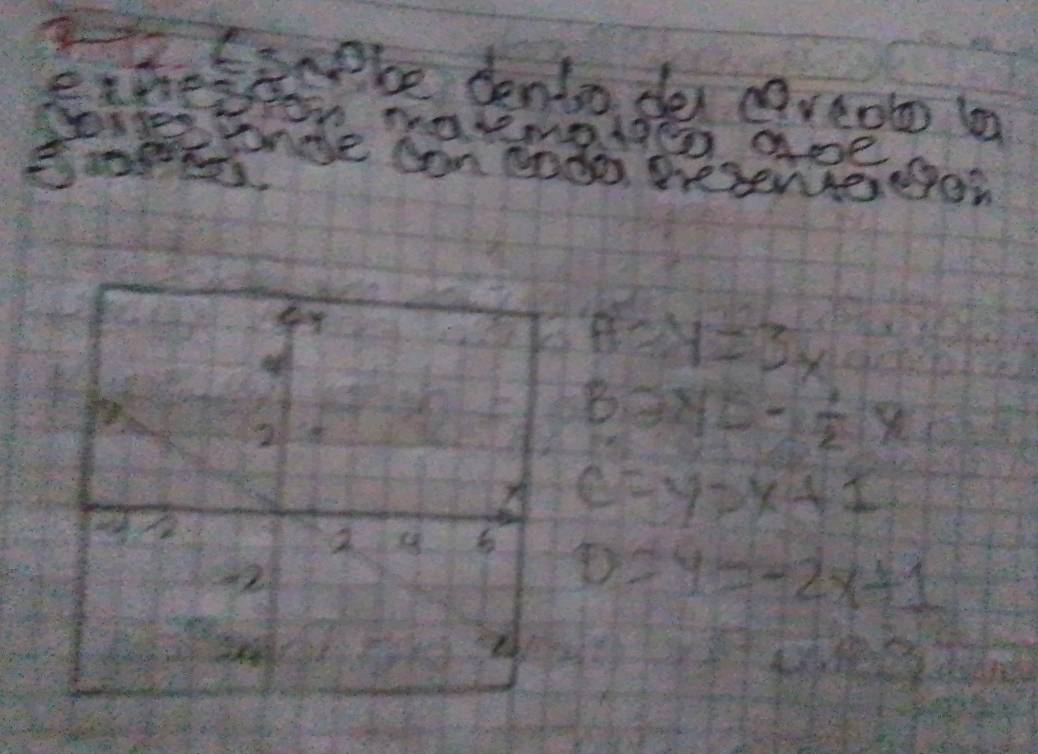 Escribe dentro del circulo la
expresión matematica que
corresponde con cada presentación
grafica.
y
4
2
x
-4 -2 2 4 6
-2
-4
A = y = 3x
B = y = - 1/2 x
C = y = x + 1
D = y = -2x + 1